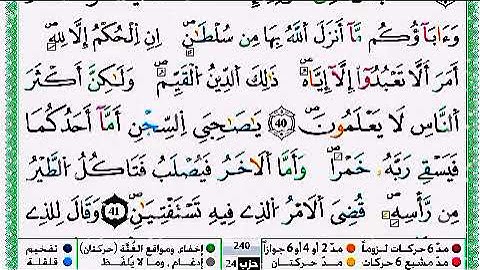 وَءَابَآؤُكُم مَّآ أَنزَلَ ٱللَّهُ بِهَا مِن سُلْطَٰنٍۖ إِنِ ٱلْحُكْمُ إِلَّا لِلهِۖ
أَمَرَ أَلَّا تَعْبُدُوٓا۟ إِلَّآ إِيَّاهُۖ ذَٰلِكَ ٱلدِّينُ ٱلْقَيِّمُ وَلَٰكِنَّ أَكْثَرَ
ٱلنَّاسِ لَا يَعْلَمُونَۖ 40 يَٰصَٰحِبَيِ ٱلسِّجْنِ أَمَّآ أَحَدُكُمَا
فَيَسْقِے رَبَّهُۥ خَمْراًۖ وَأَمَّا ٱلَاخَرُ فَيُصْلَبُ فَتَاكُلُ ٱلطَّيْرُ
مِن رَّأْسِهِۦۖ قُضِىَ ٱلَامْرُ ٱلذِے فِيهِ تَسْتَفْتِيَٰنِۖ 41 وَقَالَ لِلذِے
مدّ 6 حركات لزوماً مدّ 2 أو 4 أو 6 جوازاً 240 إخفاء، ومواقع الغُنَّة (حركتان) تفخيم
مدّ مشبع 6 حركات مدّ حركتان حزب 24 إدغام، وما لا يُلفَظ قلقلة